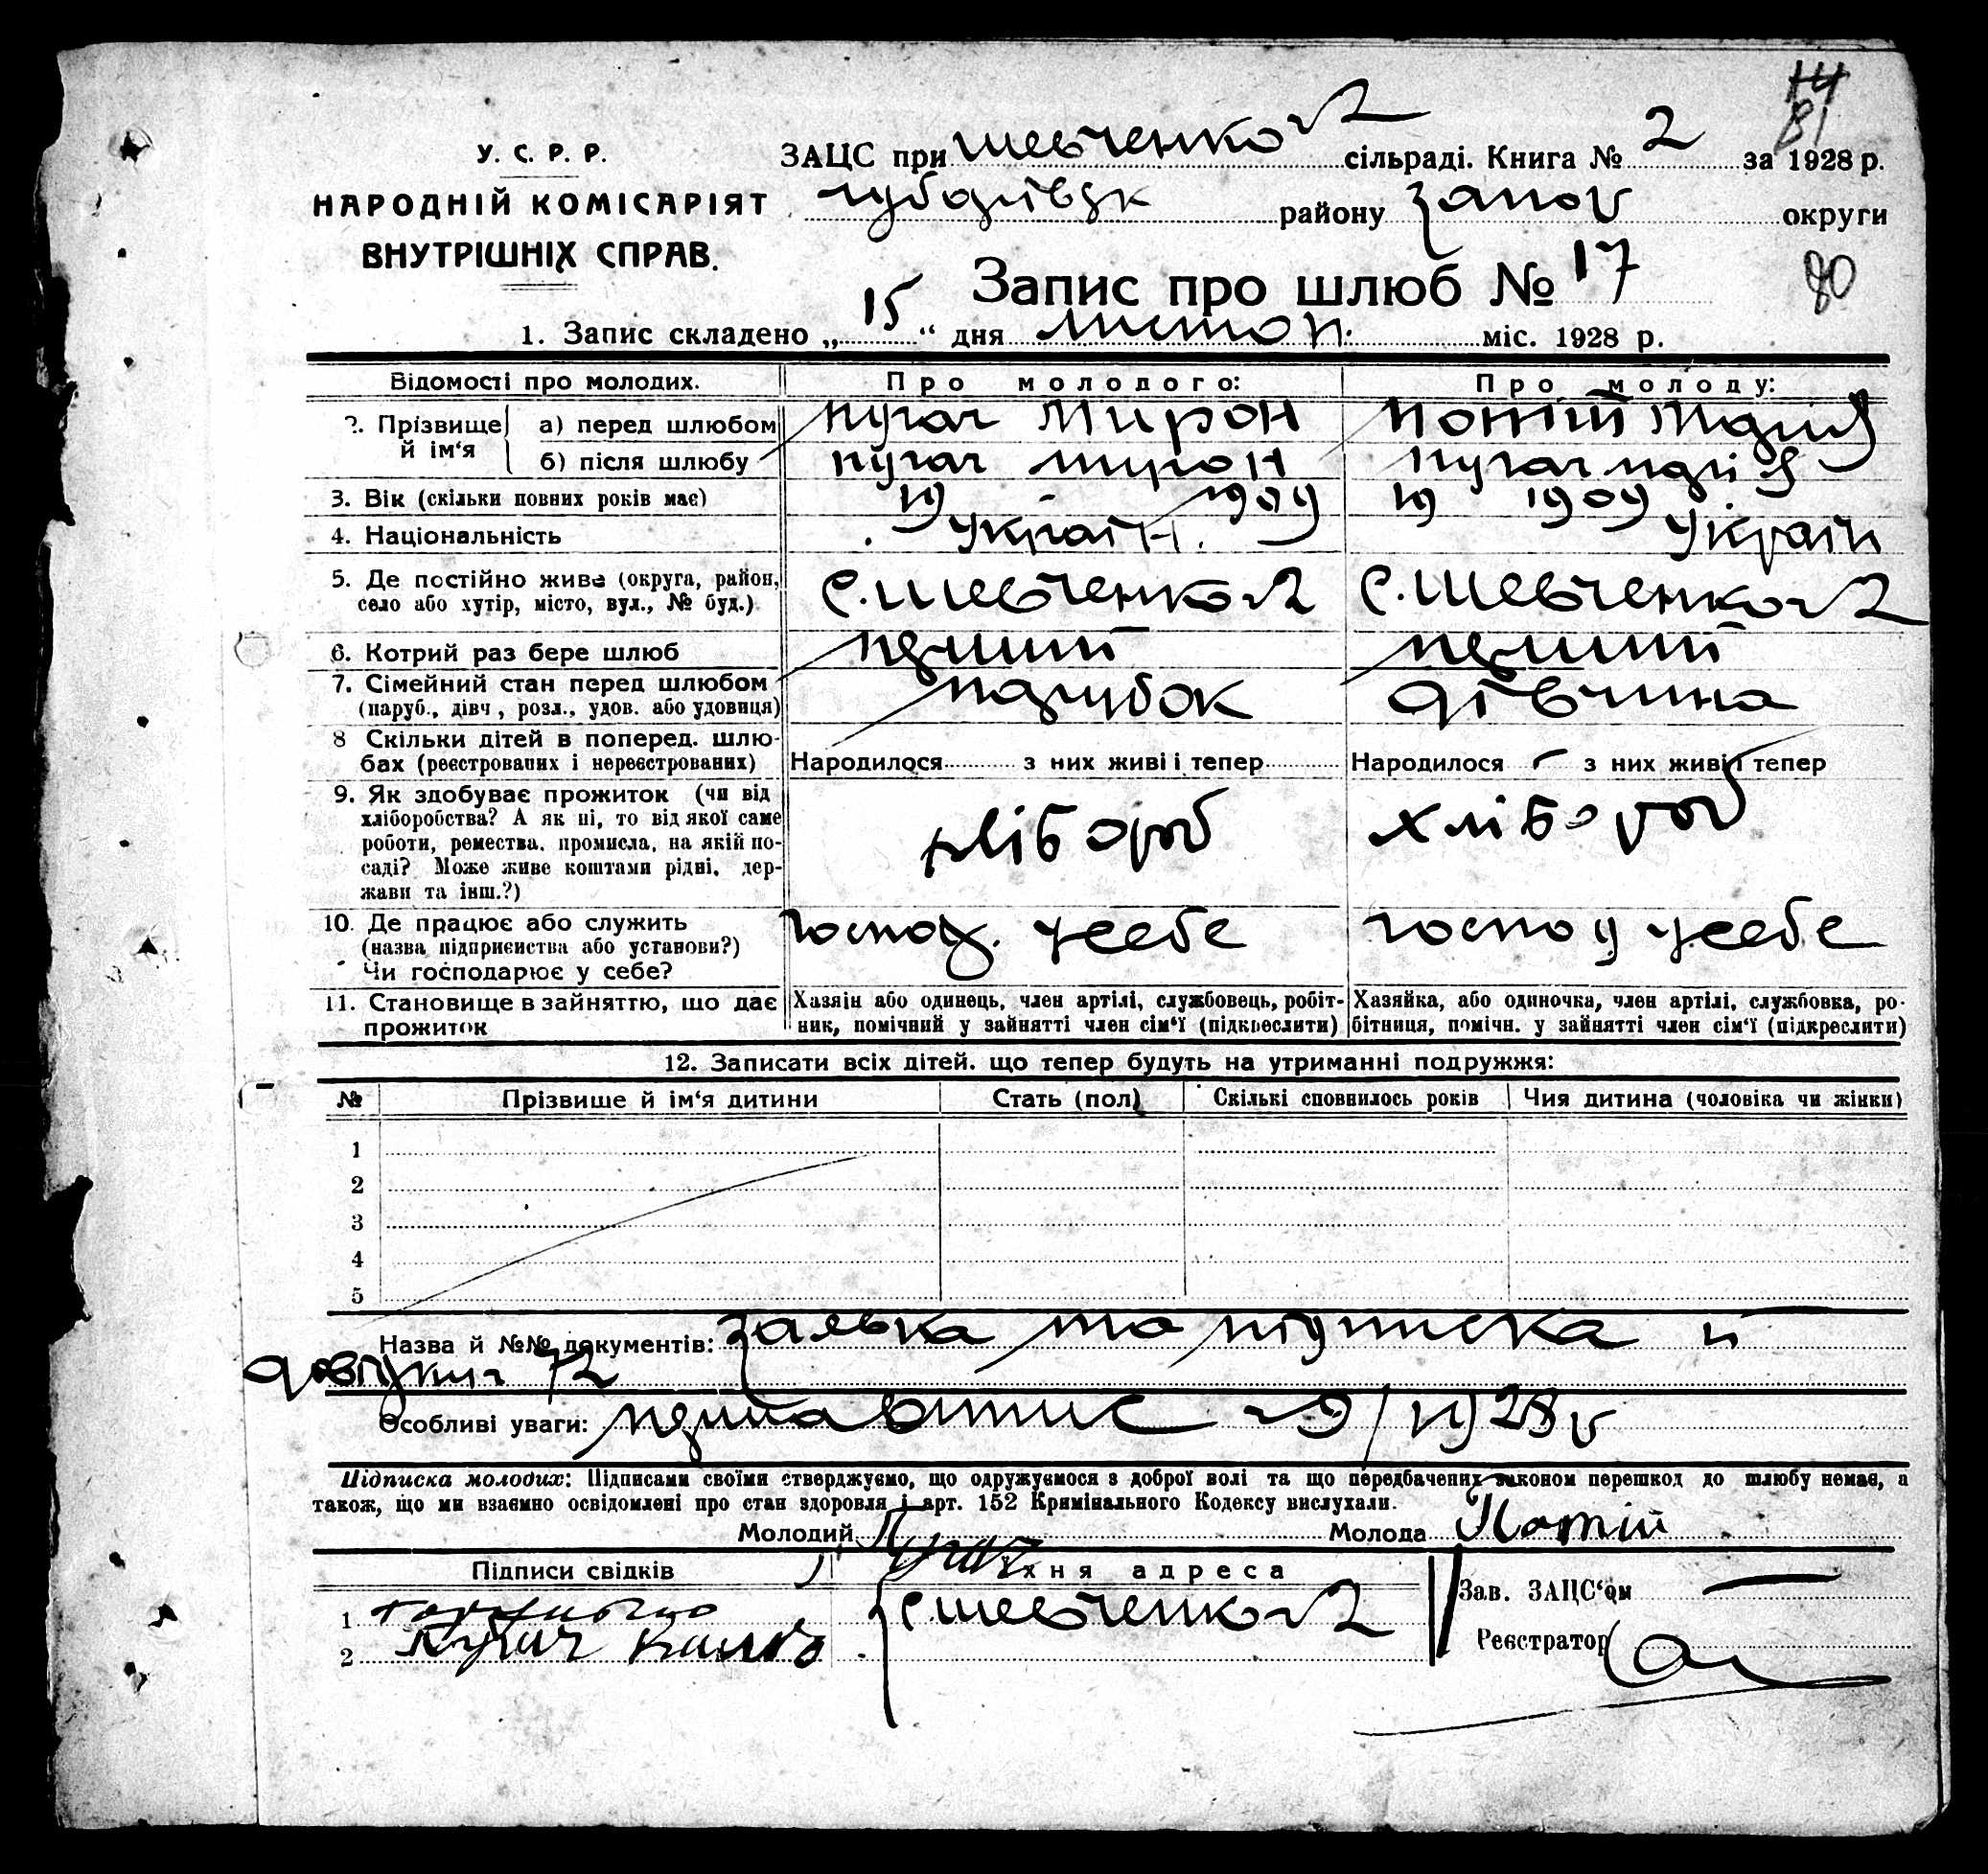 14
81
У. С. Р. Р.
НАРОДНІЙ КОМІСАРІЯТ
ВНУТРІШНІХ СПРАВ.
ЗАЦС при Шевченков сільраді. Книга № 2 за 1928 р.
району Запор округи
80
Запис про шлюб № 17
1. Запис складено „ 15 “ дня листоп. міс. 1928 р.
Відомості про молодих. Про молодого: Про молоду:
2. Прізвище й ім‘я а) перед шлюбом Пугач Мирон Потій Марія
б) після шлюбу Пугач Мирон Пугач Марія
3. Вік (скільки повних років має) 19 - 1909 19 1909
4. Національність Україн. Україн
5. Де постійно живе (округа, район, село або хутір, місто, вул., № буд.) с. Шевченков с. Шевченков
6. Котрий раз бере шлюб перший перший
7. Сімейний стан перед шлюбом парубок дівчина
(паруб., дівч, розл., удов. або удовиця)
8 Скільки дітей в поперед. шлю-
бах (реєстрованих і нереєстрованих) Народилося з них живі і тепер Народилося з них живі і тепер
9. Як здобуває прожиток (чи від
хліборобства? А як ні, то від якої саме
роботи, ремества, промисла, на якій по- хлібороб хлібороб
саді? Може живе коштами рідні, дер-
жави та інш.?)
10. Де працює або служить
(назва підприємства або установи?) господ. у себе господ у себе
Чи господарює у себе?
11. Становище в зайняттю, що дає Хазяін або одинець, член артілі, службовець, робіт- Хазяйка, або одиночка, член артілі, службовка, ро-
прожиток ник, помічний у зайнятті член сім‘ї (підкреслити) бітниця, помічн. у зайнятті член сім‘ї (підкреслити)
12. Записати всіх дітей. що тепер будуть на утриманні подружжя:
№ Прізвище й ім‘я дитини Стать (пол) Скількі сповнилось років Чия дитина (чоловіка чи жінки)
1
2
3
4
5
Назва й №№ документів: Заявка та підписка й
72
Особливі уваги: 1928 р
Підписка молодих: Підписами своїми стверджуємо, що одружуємося з доброї волі та що передбачених законом перешкод до шлюбу немає, а
також, що ми взаємно освідомлені про стан здоровля і арт. 152 Кримінального Кодексу вислухали.
Молодий Пугач Молода Потій
Підписи свідків Їхня адреса
1 с. Шевченков
2 Пугач
Зав. ЗАЦС‘ом
Реєстратор